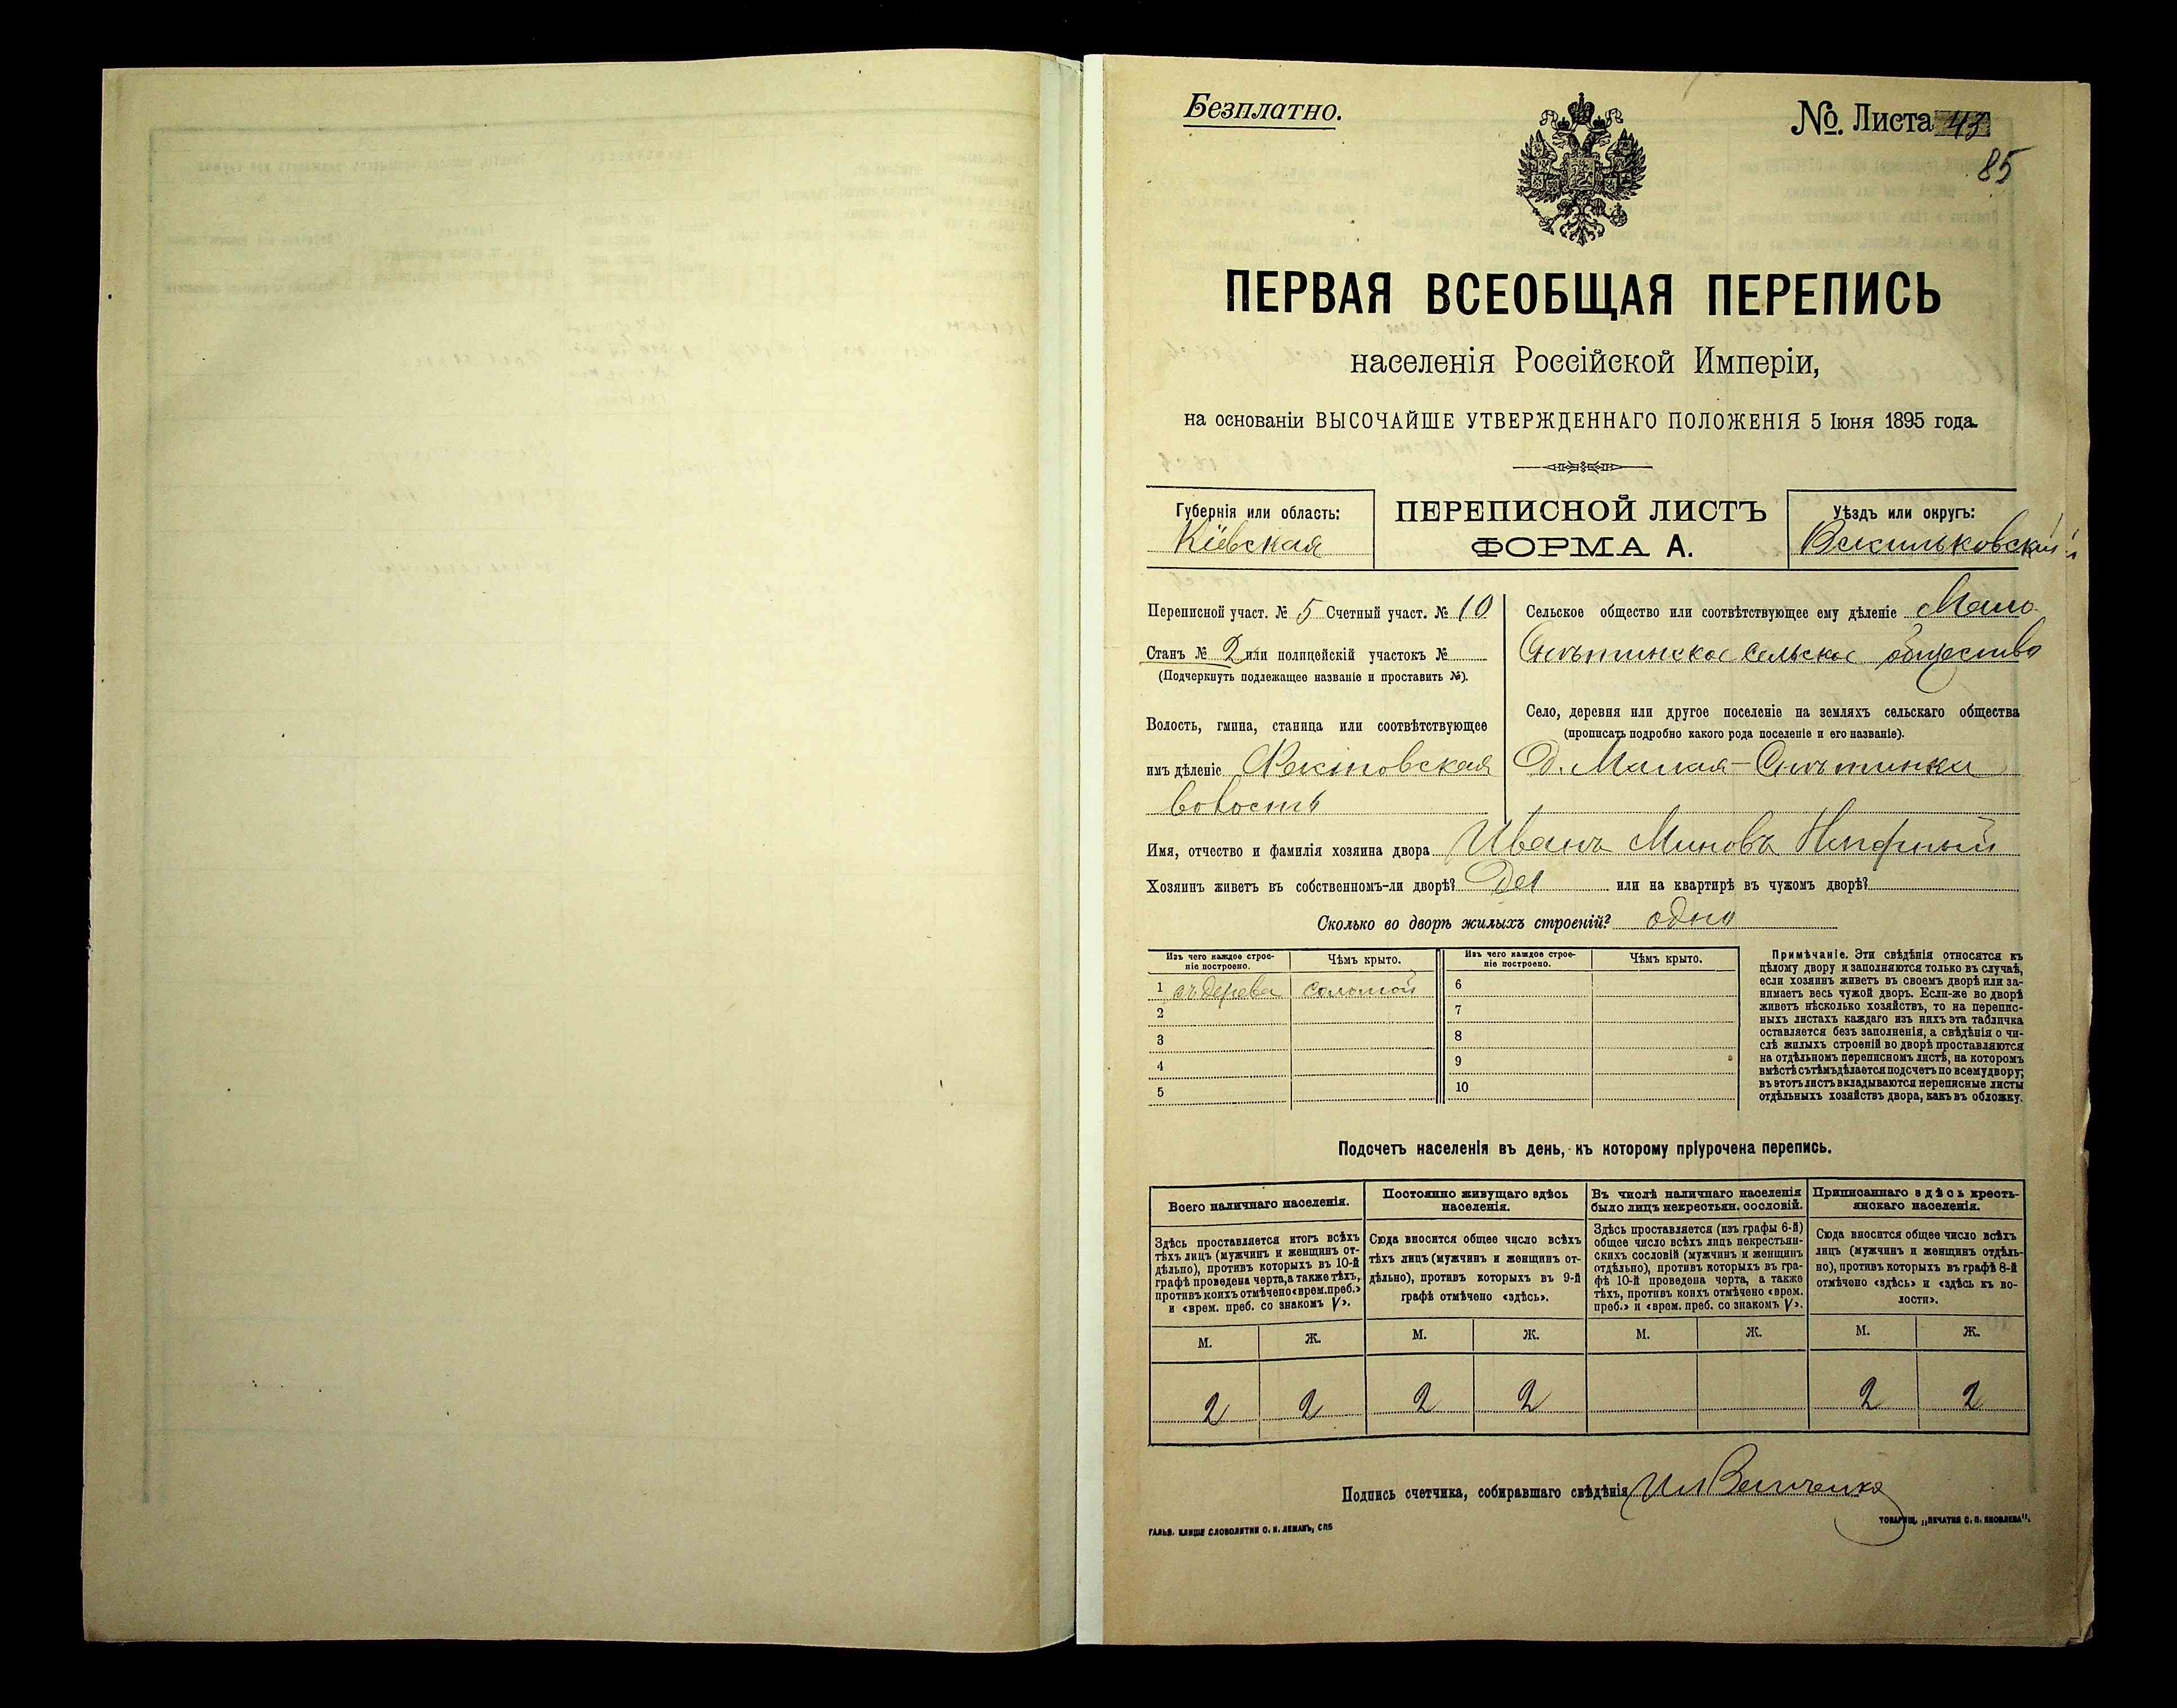 Безплатно.
№. Листа 43
85
ПЕРВАЯ ВСЕОБЩАЯ ПЕРЕПИСЬ
населенія Россійской Имперіи,
на основаніи ВЫСОЧАЙШЕ УТВЕРЖДЕННАГО ПОЛОЖЕНІЯ 5 Іюня 1895 года.
Губернія или область:
Кіевская
ПЕРЕПИСНОЙ ЛИСТЪ
ФОРМА А.
Уѣздъ или округъ:
Васильковскій
Переписной участ. № 5 Счетный участ. № 10
Станъ № 2 или полицейскій участокъ №
(Подчеркнуть подлежащее названіе и проставить №).
Волость, гмина, станица или соотвѣтствующее
имъ дѣленіе
волость
Сельское общество или соотвѣтствующее ему дѣленіе Мало
Снѣтинское сельское общество
Село, деревня или другое поселеніе на земляхъ сельскаго общества
(прописать подробно какого рода поселеніе и его названіе).
Д. Малая-Снѣтинка
Имя, отчество и фамилія хозяина двора Иванъ Миновъ
Хозяинъ живетъ въ собственномъ-ли дворѣ? Да или на квартирѣ въ чужомъ дворѣ?
Сколько во дворѣ жилыхъ строеній? одно
Изъ чего каждое строе-
ніе построено.
Чѣмъ крыто.
Изъ чего каждое строе-
ніе построено.
Чѣмъ крыто.
1 съ дерева соломой
2
3
4
5
6
7
8
9
10
Примѣчаніе. Эти свѣдѣнія относятся къ
цѣлому двору и заполняются только въ случаѣ,
если хозяинъ живетъ въ своемъ дворѣ или за-
нимаетъ весь чужой дворъ. Если-же во дворѣ
живетъ нѣсколько хозяйствъ, то на перепис-
ныхъ листахъ каждаго изъ нихъ эта табличка
оставляется безъ заполненія, а свѣдѣнія о чи-
слѣ жилыхъ строеній во дворѣ проставляются
на отдѣльномъ переписномъ листѣ, на которомъ
вмѣстѣ съ тѣмъ дѣлается подсчетъ по всему двору;
въ этотъ листъ вкладываются переписные листы
отдѣльныхъ хозяйствъ двора, какъ въ обложку.
Подсчетъ населенія въ день, къ которому пріурочена перепись.
Всего наличнаго населенія.
Здѣсь проставляется итогъ всѣхъ
тѣхъ лицъ (мужчинъ и женщинъ от-
дѣльно), противъ которыхъ въ 10-й
графѣ проведена черта, а также тѣхъ,
противъ коихъ отмѣчено «врем. преб.»
и «врем. преб. со знакомъ V».
Постоянно живущаго здѣсь
населенія.
Сюда вносится общее число всѣхъ
тѣхъ лицъ (мужчинъ и женщинъ от-
дѣльно), противъ которыхъ въ 9-й
графѣ отмѣчено «здѣсь».
Въ числѣ наличнаго населенія
было лицъ некрестьян. сословій.
Здѣсь проставляется (изъ графы 6-й)
общее число всѣхъ лицъ некрестьян-
скихъ сословій (мужчинъ и женщинъ
отдѣльно), противъ которыхъ въ гра-
фѣ 10-й проведена черта, а также
тѣхъ, противъ коихъ отмѣчено «врем.
преб.» и «врем. преб. со знакомъ V».
Приписаннаго здѣсь кресть-
янскаго населенія.
Сюда вносится общее число всѣхъ
лицъ (мужчинъ и женщинъ отдѣль-
но), противъ которыхъ въ графѣ 8-й
отмѣчено «здѣсь» и «здѣсь къ во-
лости».
М. Ж. М. Ж. М. Ж. М. Ж.
2 2 2 2 2 2
Подпись счетчика, собиравшаго свѣдѣнія
ГАЛЬВ. КЛИШЕ СЛОВОЛИТНИ О. И. ЛЕМАНЪ, СПБ
ТОВАРИЩ. „ПЕЧАТНЯ С. П. ЯКОВЛЕВА".